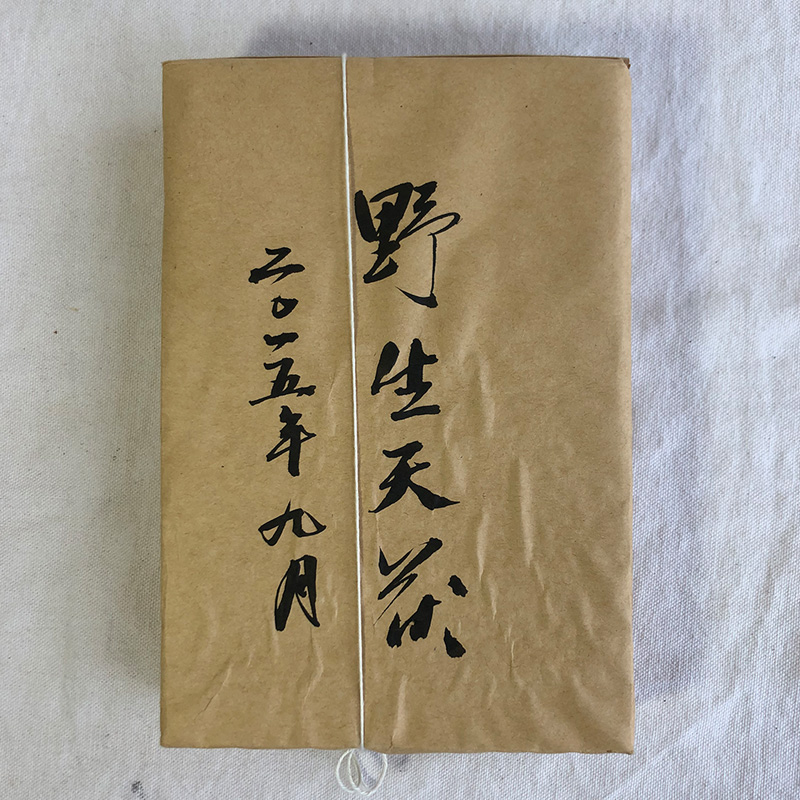 野生天茯
二〇一五年九月